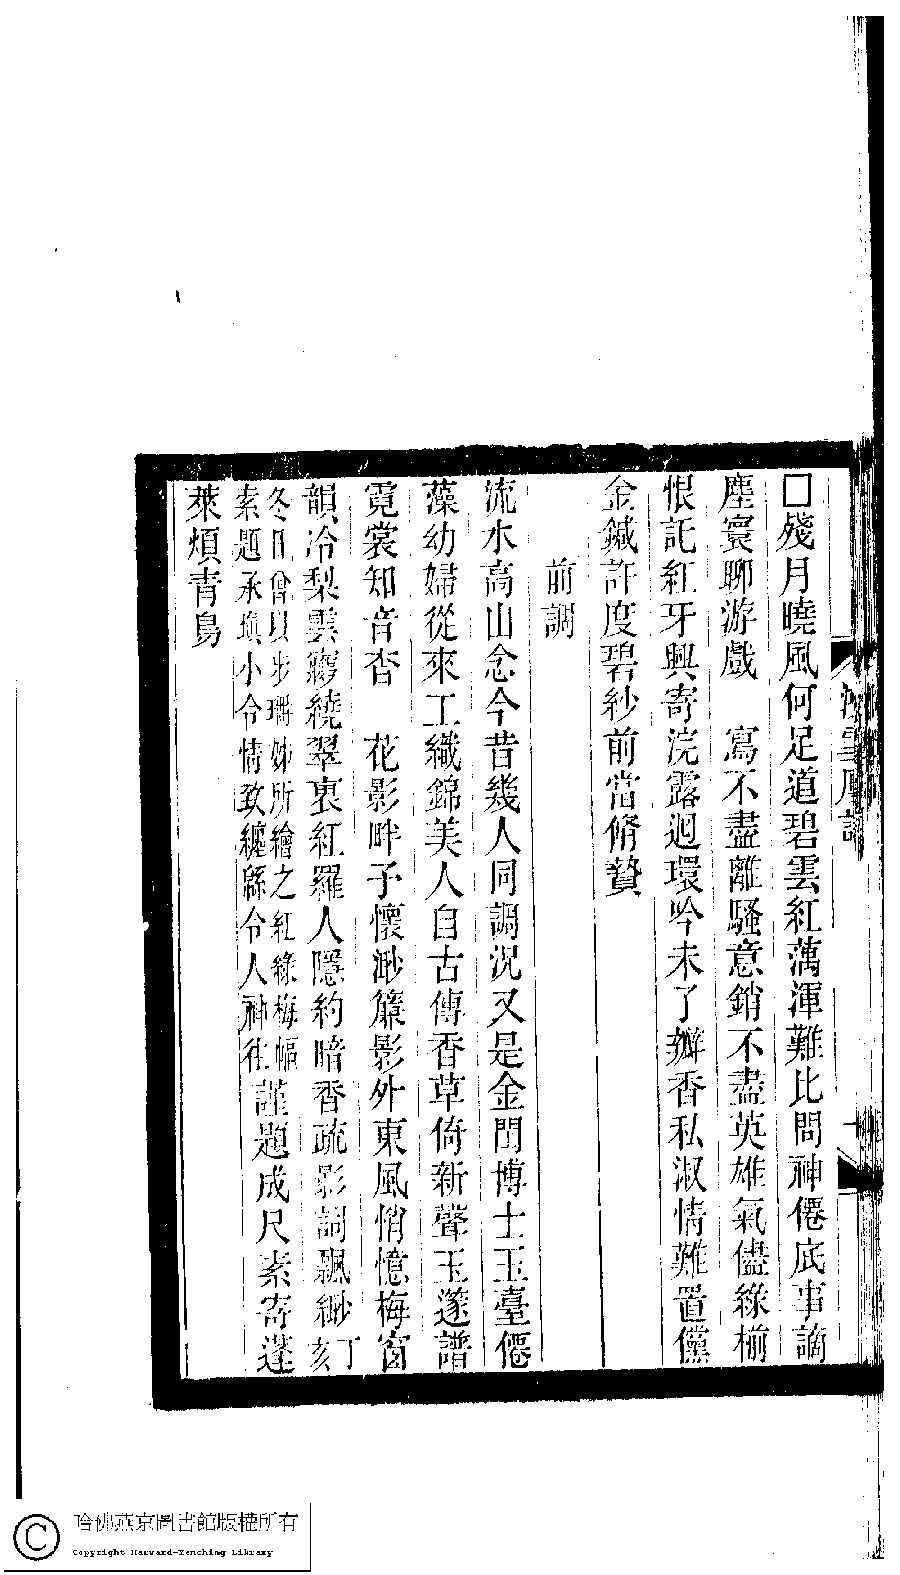 □殘月曉風何足道碧雲紅藕渾難比問神僊底事謫
塵寰聊游戲　寫不盡離騷意銷不盡英雄氣儘綠櫥
恨託紅牙興寄浣露迴環吟未了瓣香私淑情難置儻
金鍼許度碧紗前當脩贄
前調
流水高山念今昔幾人同調況又是金門博士玉臺僊
藻幼婦從來工織錦美人自古傳香草倚新聲玉邃譜
霓裳知音杳　花影畔予懷渺簾影外東風悄憶梅窗
韻冷梨雲窩繞翠裏紅羅人隱約暗香疏影詞飄緲丁亥
冬日曾以步珊姊所繪之紅綠梅幅
素題承填小令情致纏緜令人神往謹題成尺素寄蓬
萊煩青鳥
哈佛燕京圖書館版權所有
Copyright Harvard-Yenching Library